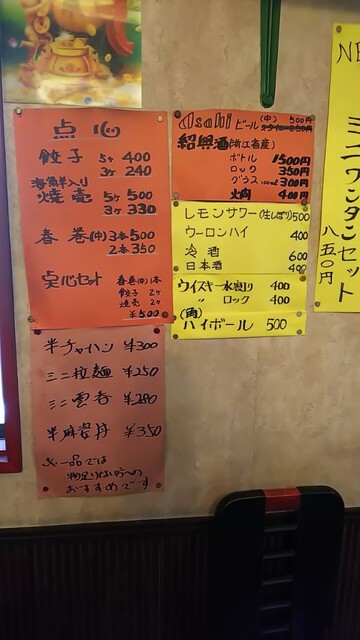 点心
餃子 5ヶ 400
3ヶ 240
海鮮入り
焼売 5ヶ 500
3ヶ 330
春巻(中) 3本 500
2本 350
点心セット 春巻(中)1本
餃子 2ヶ
焼売 2ヶ
¥500
半チャハン ¥300
ミニ拉麺 ¥250
ミニ雲呑 ¥280
半麻婆丼 ¥350
※一品では
物足りない方への
おすすめです
Asahi ビール (中) 500円
紹興酒(浙江名産)
ボトル 1500円
ロック 350円
グラス 300円
火燗 400円
レモンサワー(生しぼり)500
ウーロンハイ 400
冷酒 600
日本酒 400
ウイスキー水割り 400
〃 ロック 400
(角)
ハイボール 500
NE
ミニワンタンセット
八五〇円